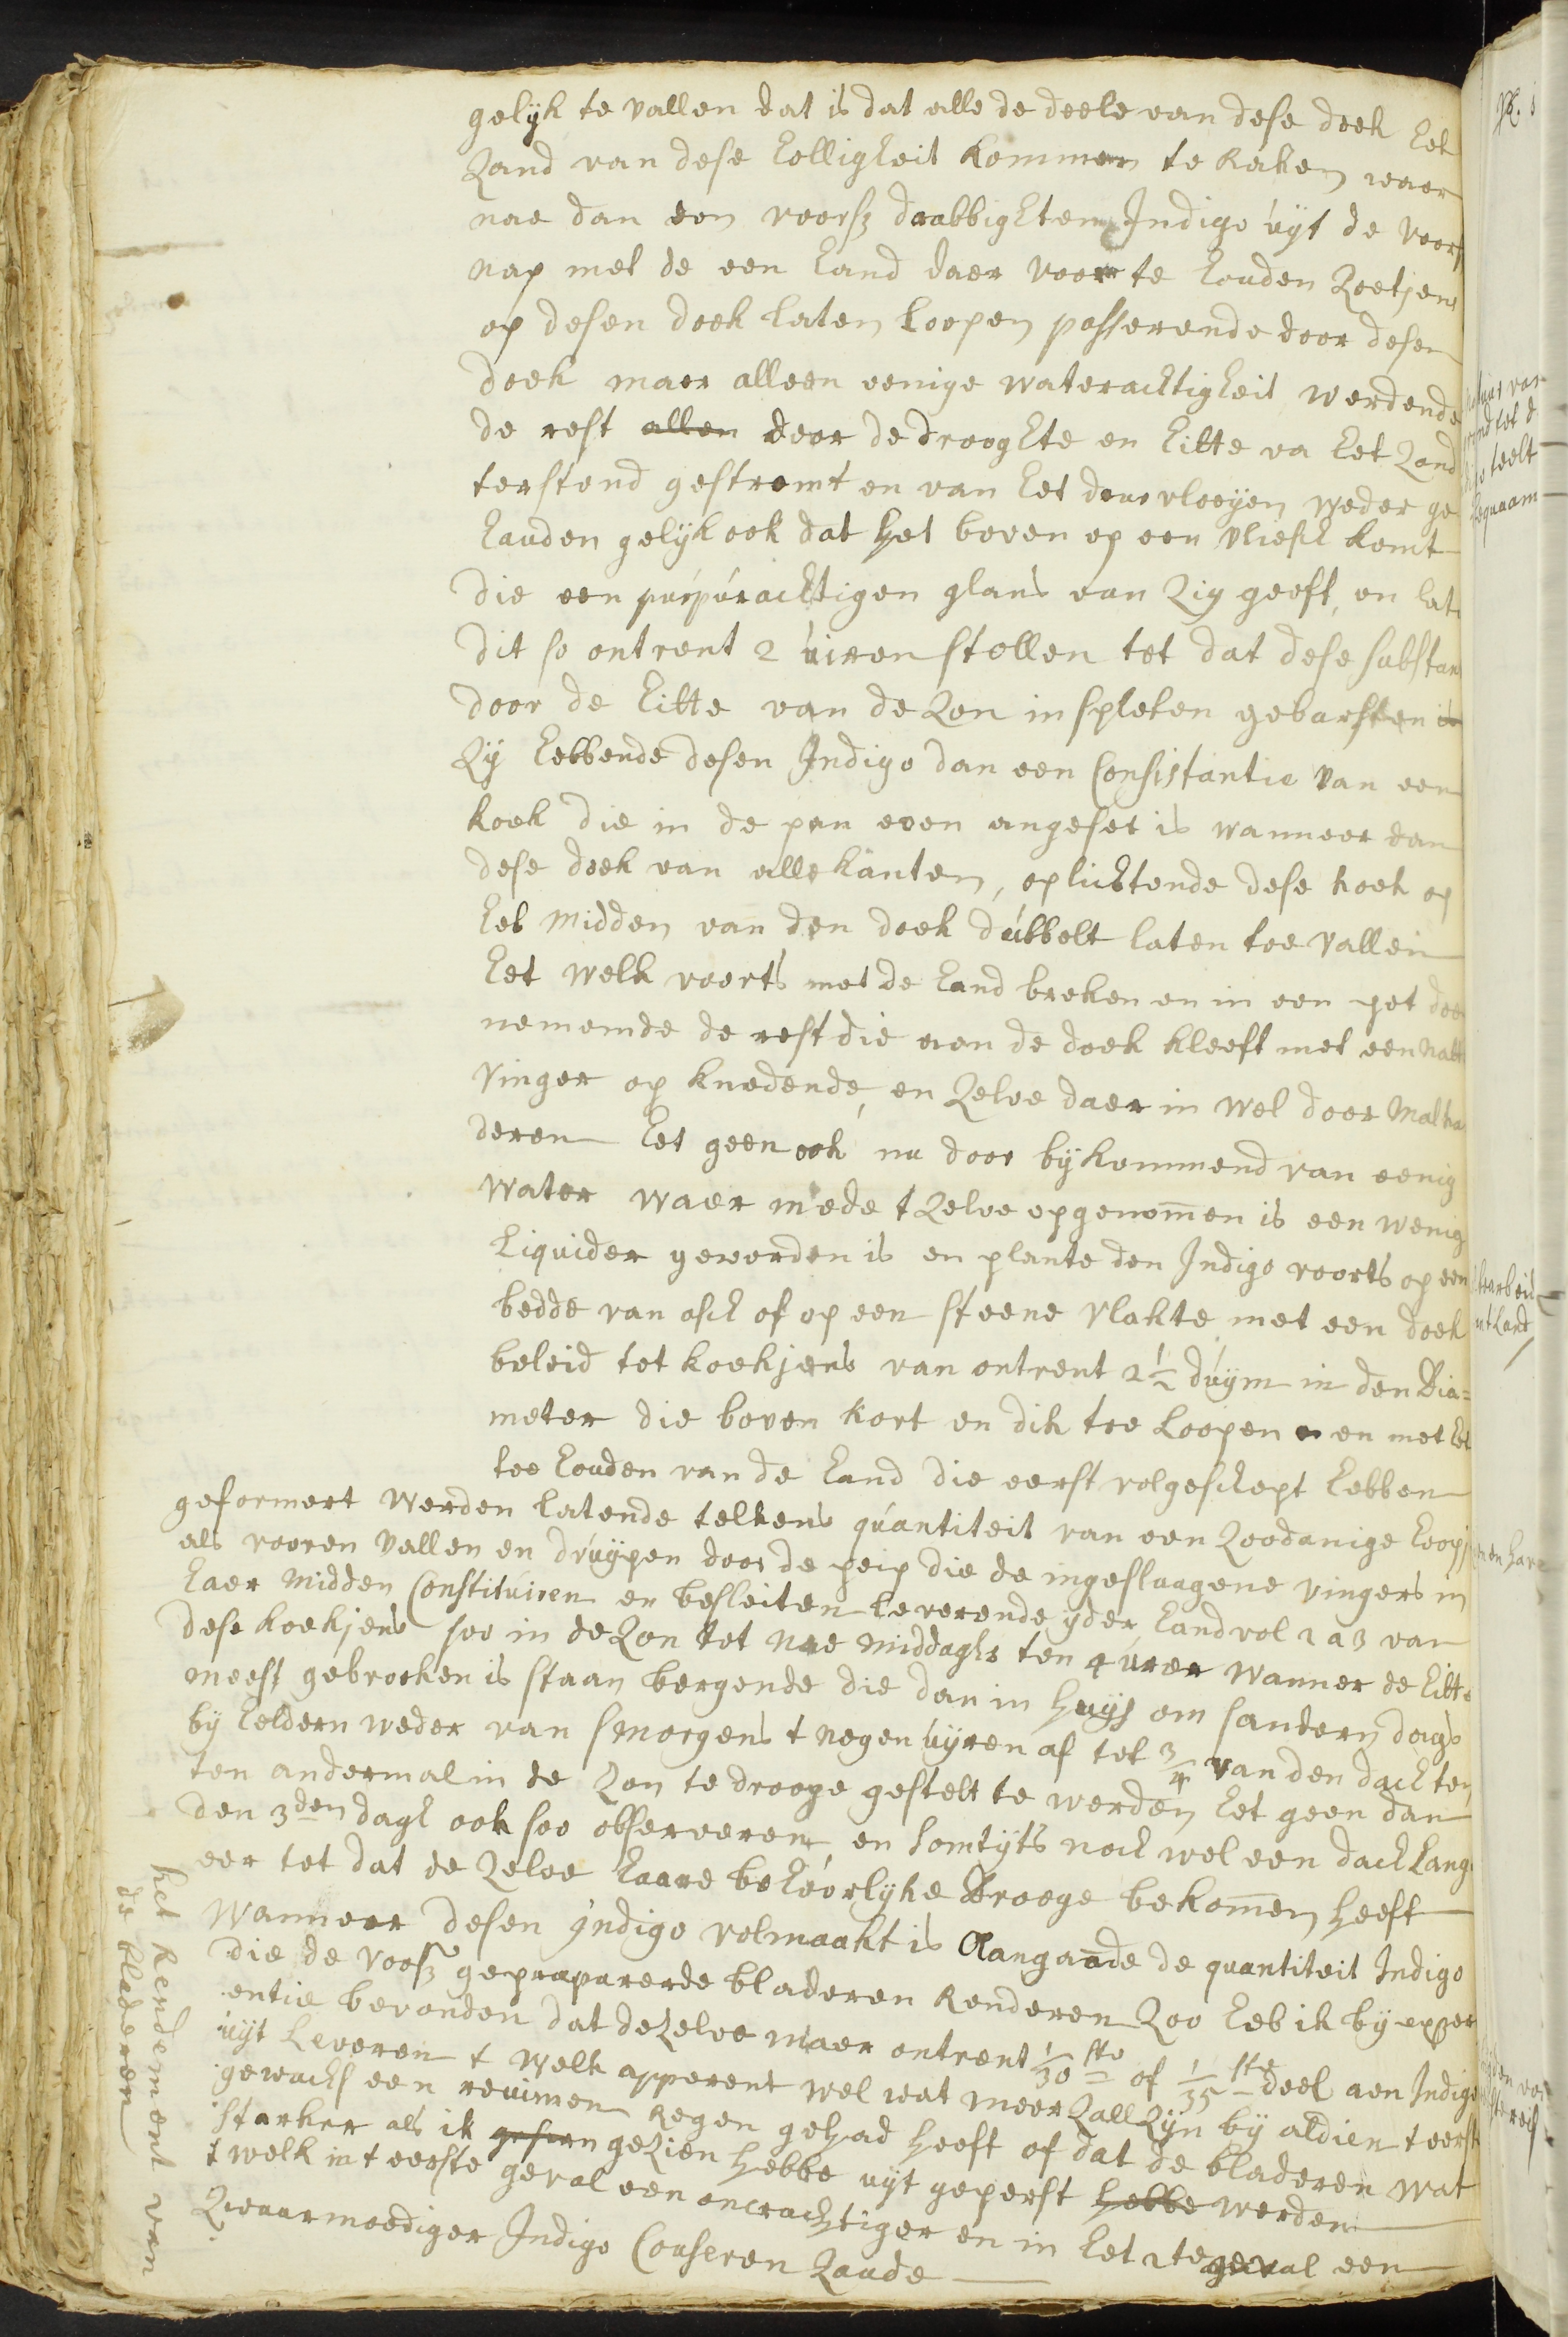 gelijk te vallen dat is dat alle de deele van dese doek het
Zand van dese holligheit kommen te raken waer
nae dan den voorsz drabbighten Indigo uyt de voors
nap met de een hand daer voor te houden Zoetjens
op desen doek laten loopen passerende door desen
doek maer alleen eenige waterachtigheit werdende
de rest allen door de drooghte en hitte va het Zand
terstond gestremt en van het deurvlooyen weder ge
hauden gelijk ook dat het boven op een vliesch komt
die een purpurachtigen glans van Zig geeft, en late
dit so ontrent 2 uiren stollen tot dat dese substan
door de hitte van de Zon in spleten gebarsten is
Zy hebbende desen Indigo dan een Consistantie van een
koek die in de pan even angeset is wanneer dan
dese doek van alle kanten, oplichtende dese koek op
het midden van den doek dubbelt laten toe vallen
het welk voorts met de hand breken en in een pot doe
nemende de rest die aen de doek kleeft met een natte
vinger op knedende, en Zelve daer in wel door malka
deren het geen ook nu door bykommend van eenig
water waer mede t Zelve opgenomen is een wenig
liquider geworden is en plante den Indigo voorts op een
bedde van asch of op een steene vlakte met een doek
beleid tot koekjens van ontrent 2 1/2 duym in den Dia=
meter die boven kort en dik toe loopen en met het
toe houden van de hand die eerst volgeschept hebben
geformert werden latende telkens quantiteit van een Zoodanige hoopj
als vooren vallen en druypen door de peip die de ingeslaagene vingers in
haer midden Constituiren en besleiten leverende yder handvol 2 a 3 van
dese koekjens soo in de Zon tot nae middaghs ten 4 uren wanner de hitte
meest gebrooken is staan bergende die dan in huys om sanderen daegs
by heldern weder van smorgens t negen uyren af tot 3/4 van den dach ten
ten andermal in de Zon te drooge gestelt te werden het geen dan
den 3den dagh ook soo observeren en somtyts noch wel een dach lang
eer tot dat de Zelve haare behoorlyke drooge bekomen heeft
wanneer desen Indigo volmaakt is Aangande de quantiteit Indigo
die de voorsz gepraeparerde bladeren renderen Zoo heb ik by exper
entie bevonden dat deZelve maer ontrent 1/30 ste of 1/35 ste deel aen Indigo
uyt leveren t welk apperent wel wat meer Zall Zyn by aldien t eerste
gewachs een reuimen Regen gehad heeft of dat de bladeren wat
starker als ik gesien gezien hebbe uyt geperst hebbe werden
t welk in t eerste geval een oncrachtiger en in het 2te geval een
Zwaarmoediger Indigo Causeren Zaude
het rendement van
de bladeren
teelt
bequaam